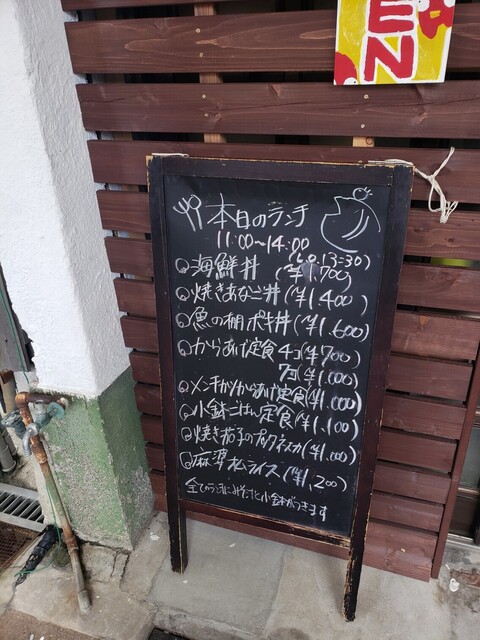 EN
本日のランチ
11:00~14:00
(L.O.13:30)
海鮮丼 (¥1,700)
焼きあなご丼 (¥1,400)
魚の棚ポキ丼 (¥1,600)
からあげ定食 4コ (¥700)
7コ (¥1,000)
メンチかつからあげ定食 (¥1,000)
小鉢ごはん定食 (¥1,100)
焼き茄子のプッタネスカ (¥1,000)
麻婆ライス (¥1,200)
全てのランチにみそ汁と小鉢がつきます